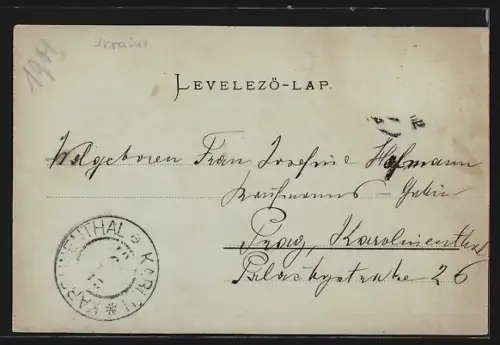 1901
Ukraine
LEVELEZŐ-LAP.
Wolgeboren Frau Josefine Hofmann
Kaufmanns-Gatin
Prag, Karolinenthal
Palackystrake 26
KAROLINENTHAL a KARLÍN